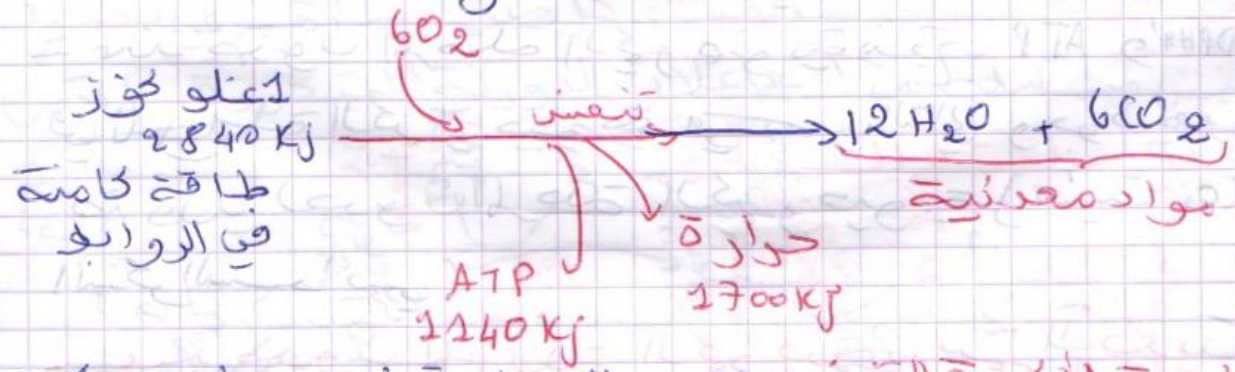 6O2
1 غلوكوز
2840 Kj
طاقة كامنة
في الروابط
تنفس
12 H2O + 6CO2
مواد معدنية
حرارة
1700 Kj
ATP
1140 Kj